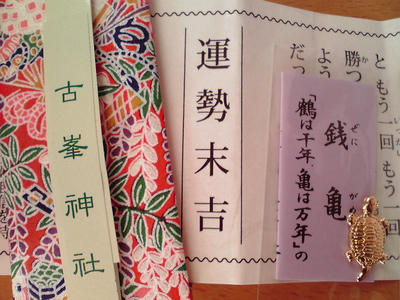 と もう一回 もう一回
勝つ
よう
だっ
運勢末吉
銭亀
「鶴は千年、亀は万年」の
古峯神社